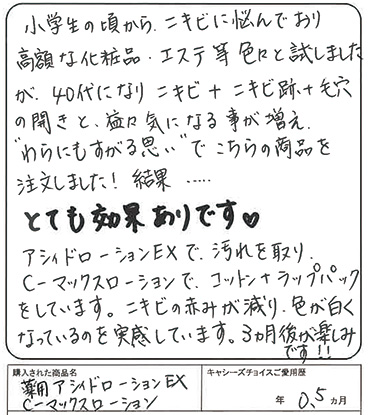 小学生の頃から、ニキビに悩んでおり
高額な化粧品・エステ等 色々と試しました
が、40代になり ニキビ+ニキビ跡+毛穴
の開きと、益々気になる事が増え、
"わらにもすがる思い"で こちらの商品を
注文しました! 結果 ‥‥‥
とても効果ありです♥
アシィドローションEXで、汚れを取り、
C-マックスローションで、コットン+ラップパック
をしています。ニキビの赤みが減り、色が白く
なっているのを実感しています。3ヵ月後が楽しみ
です!!
購入された商品名
薬用アシィドローションEX
C-マックスローション
キャシーズチョイスご愛用歴
年 0,5ヵ月